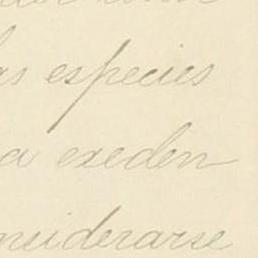 as especies
a exeden
nsiderarse